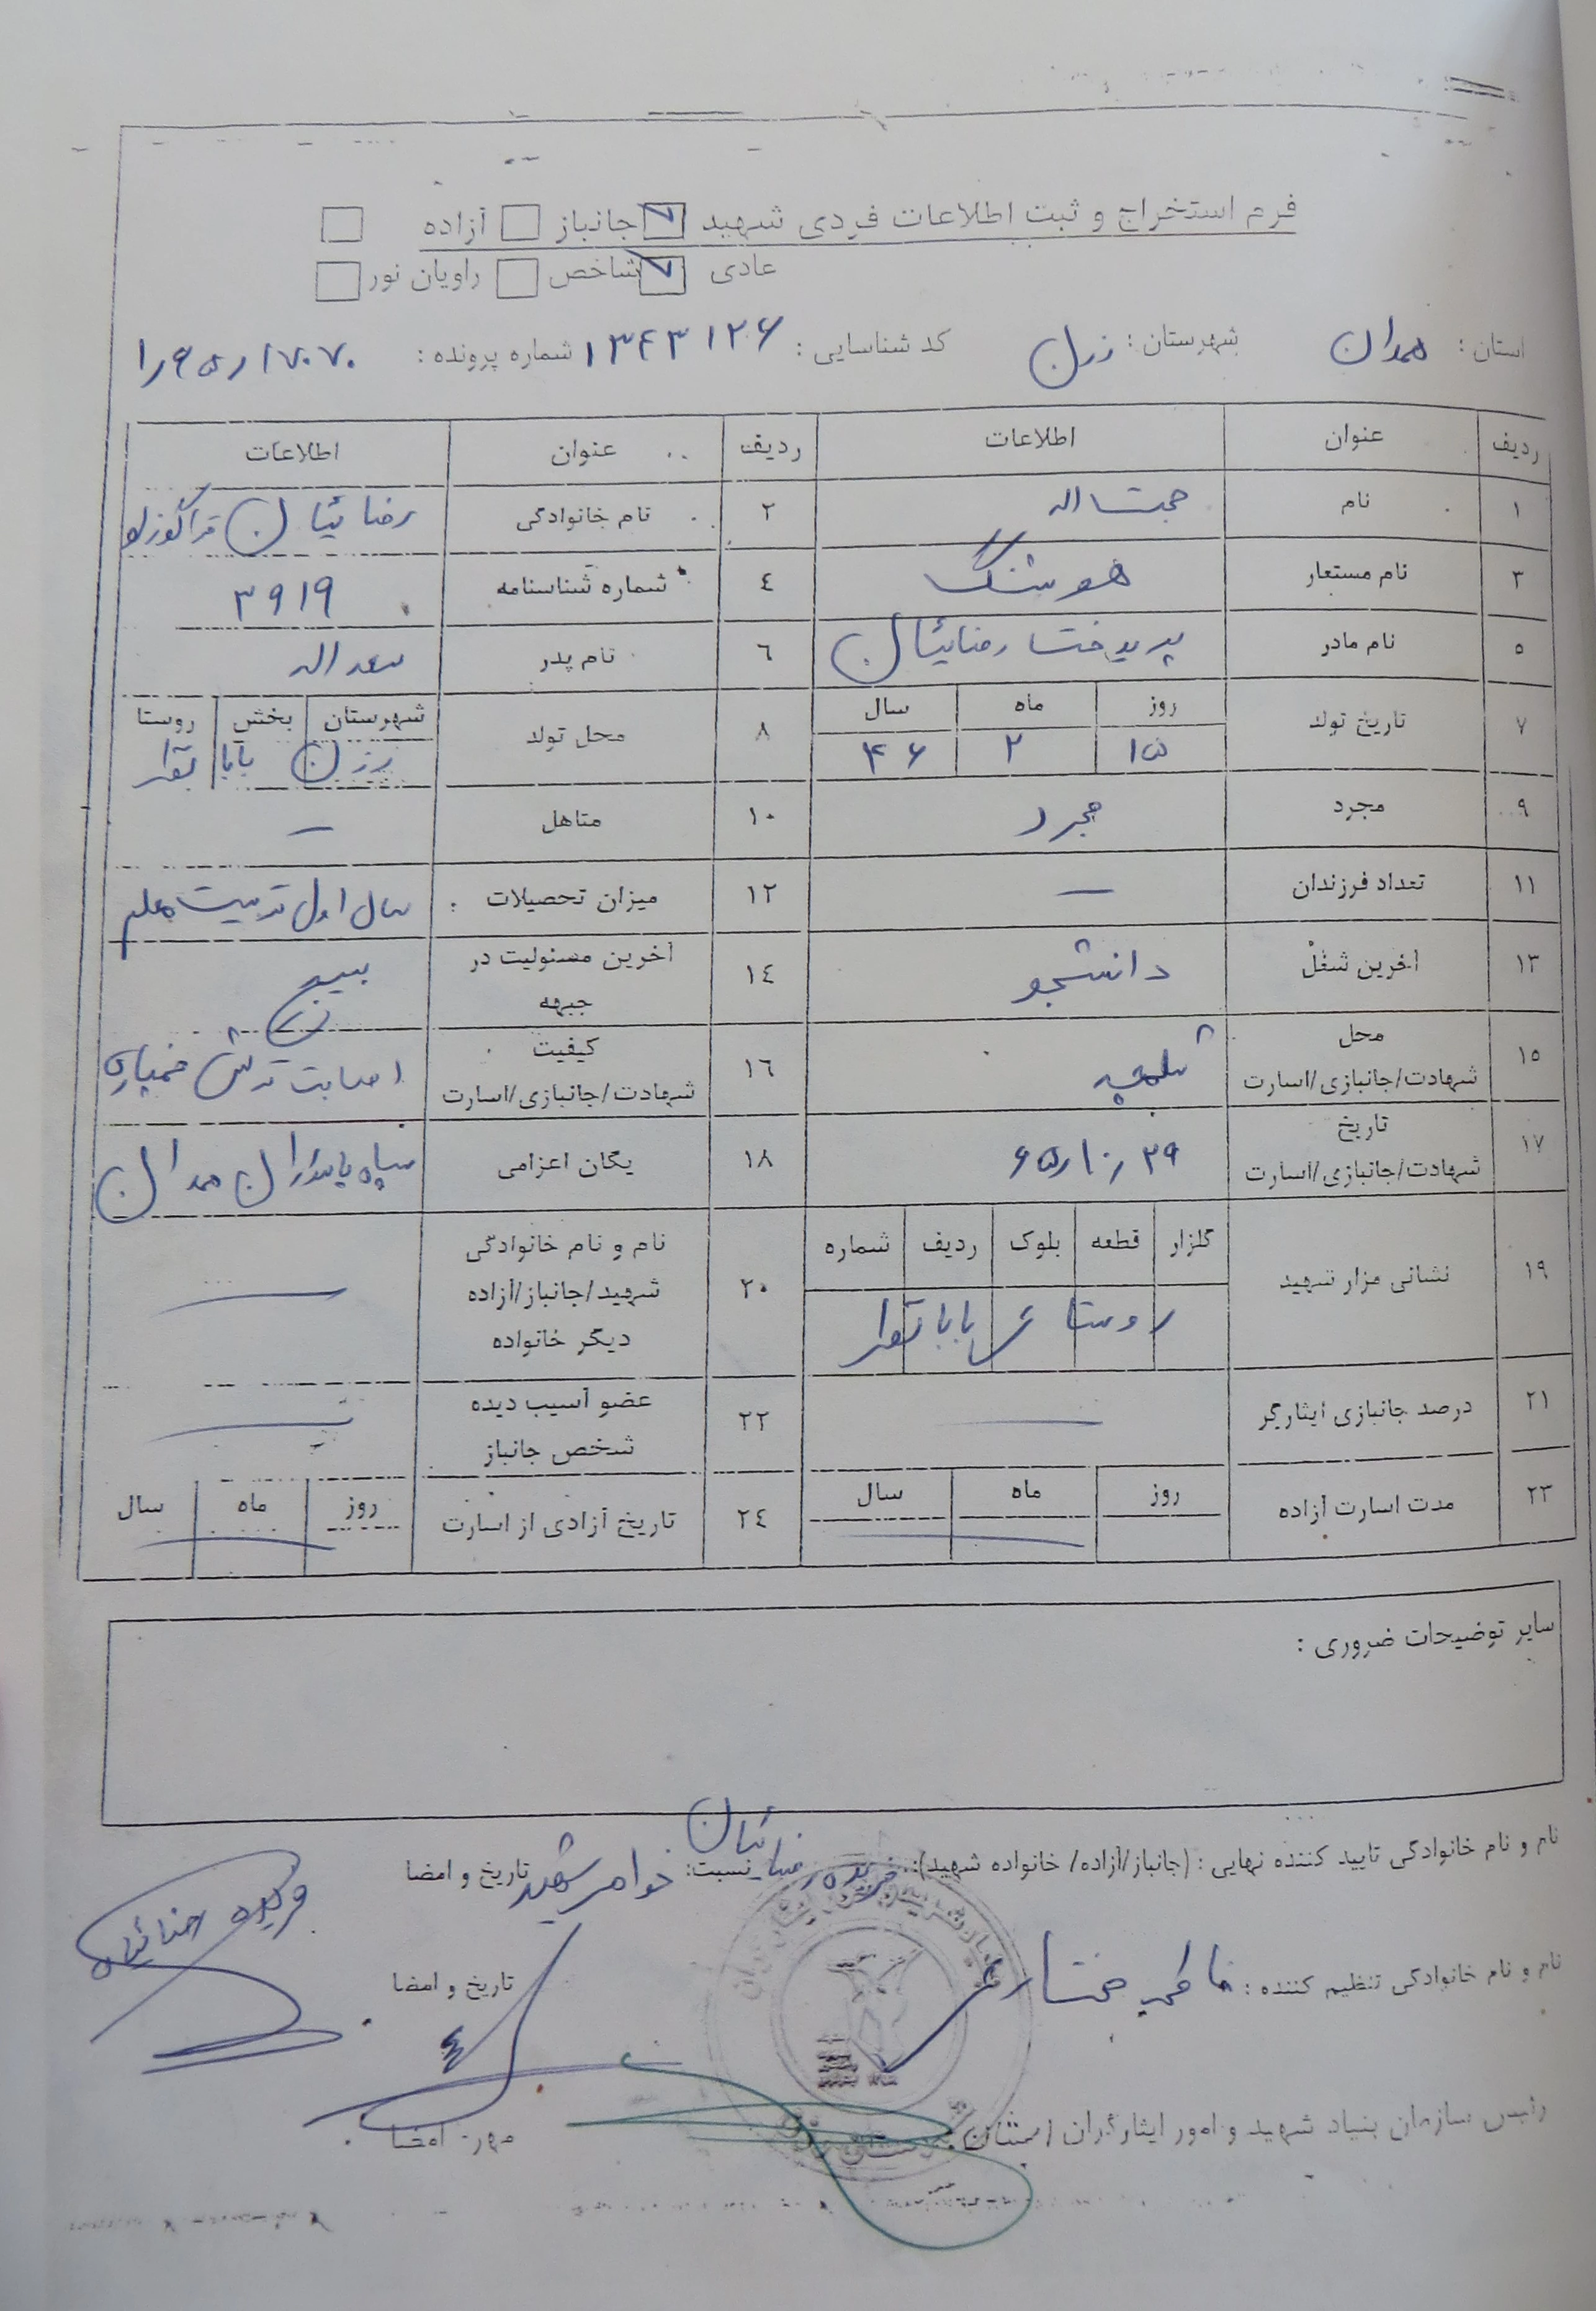 فرم استخراج و ثبت اطلاعات فردی شهید جانباز آزاده
عادی شاخص راویان نور
استان : همدان شهرستان : رزن کد شناسایی : ۱۳۴۳۱۲۶ شماره پرونده :
ردیف عنوان اطلاعات ردیف عنوان اطلاعات
۱ نام حجت اله ۲ نام خانوادگی رضائیان قراگوزلو
۳ نام مستعار هوشنگ ٤ شماره شناسنامه ۳۹۱۹
۵ نام مادر پریدخت رضائیان ٦ نام پدر سعداله
۷ تاریخ تولد روز ماه سال ۸ محل تولد شهرستان بخش روستا
۱۵ ۲ ۴۶ رزن بابا نظر
۹ مجرد مجرد ۱۰ متاهل —
۱۱ تعداد فرزندان — ۱۲ میزان تحصیلات : سال اول تربیت معلم
۱۳ آخرین شغل دانشجو ۱٤ آخرین مسئولیت در جبهه بسیج
۱۵ محل شهادت/جانبازی/اسارت شلمچه ۱٦ کیفیت شهادت/جانبازی/اسارت اصابت ترکش خمپاره
۱۷ تاریخ شهادت/جانبازی/اسارت ۱۸ یگان اعزامی سپاه پاسداران همدان
۱۹ نشانی مزار شهید گلزار قطعه بلوک ردیف شماره ۲۰ نام و نام خانوادگی شهید/جانباز/آزاده دیگر خانواده —
روستای بابا نظر
۲۱ درصد جانبازی ایثارگر — ۲۲ عضو آسیب دیده شخص جانباز —
۲۳ مدت اسارت آزاده روز ماه سال ۲٤ تاریخ آزادی از اسارت روز ماه سال
سایر توضیحات ضروری :
نام و نام خانوادگی تایید کننده نهایی : (جانباز/آزاده/ خانواده شهید): فریده رضائیان نسبت: خواهر شهید تاریخ و امضا
فریده رضائیان
نام و نام خانوادگی تنظیم کننده : فاطمه مختاری تاریخ و امضا
رئیس سازمان بنیاد شهید و امور ایثارگران مهر- امضا